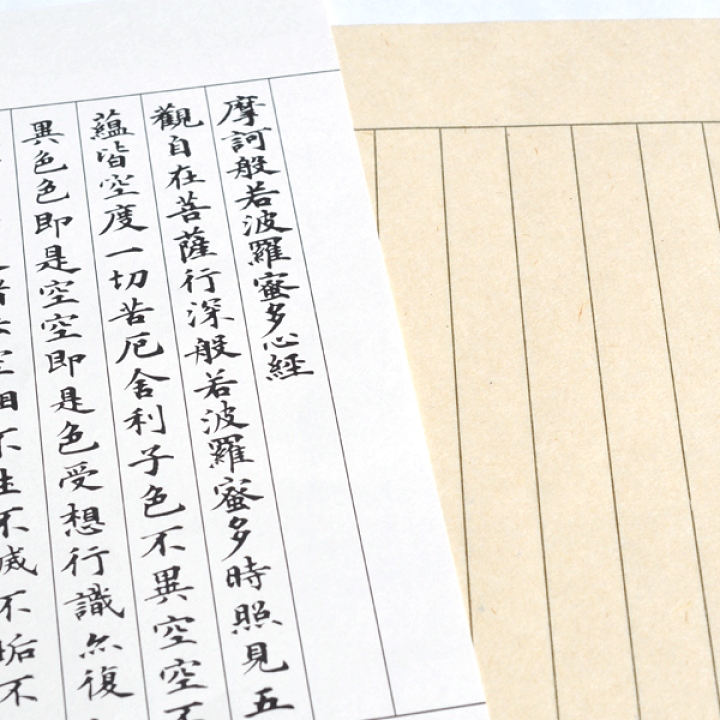 摩訶般若波羅蜜多心經
觀自在菩薩行深般若波羅蜜多時照見五
蘊皆空度一切苦厄舍利子色不異空空不
異色色即是空空即是色受想行識亦復
空相不生不滅不垢不